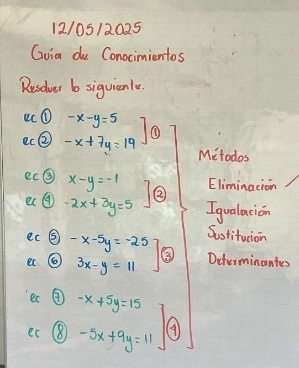 12/05/2025
Guia de Conocimientos
Resolver lo siguiente.
ec ① -x-y=5
ec ② -x+7y=19 ] ①
ec ③ x-y=-1
ec ④ -2x+3y=5 ] ②
ec ⑤ -x-5y=-25
ec ⑥ 3x-y=11 ] ③
ec ⑦ -x+5y=15
ec ⑧ -5x+9y=11 ] ④
Métodos
Eliminación
Igualación
Sustitución
Determinantes